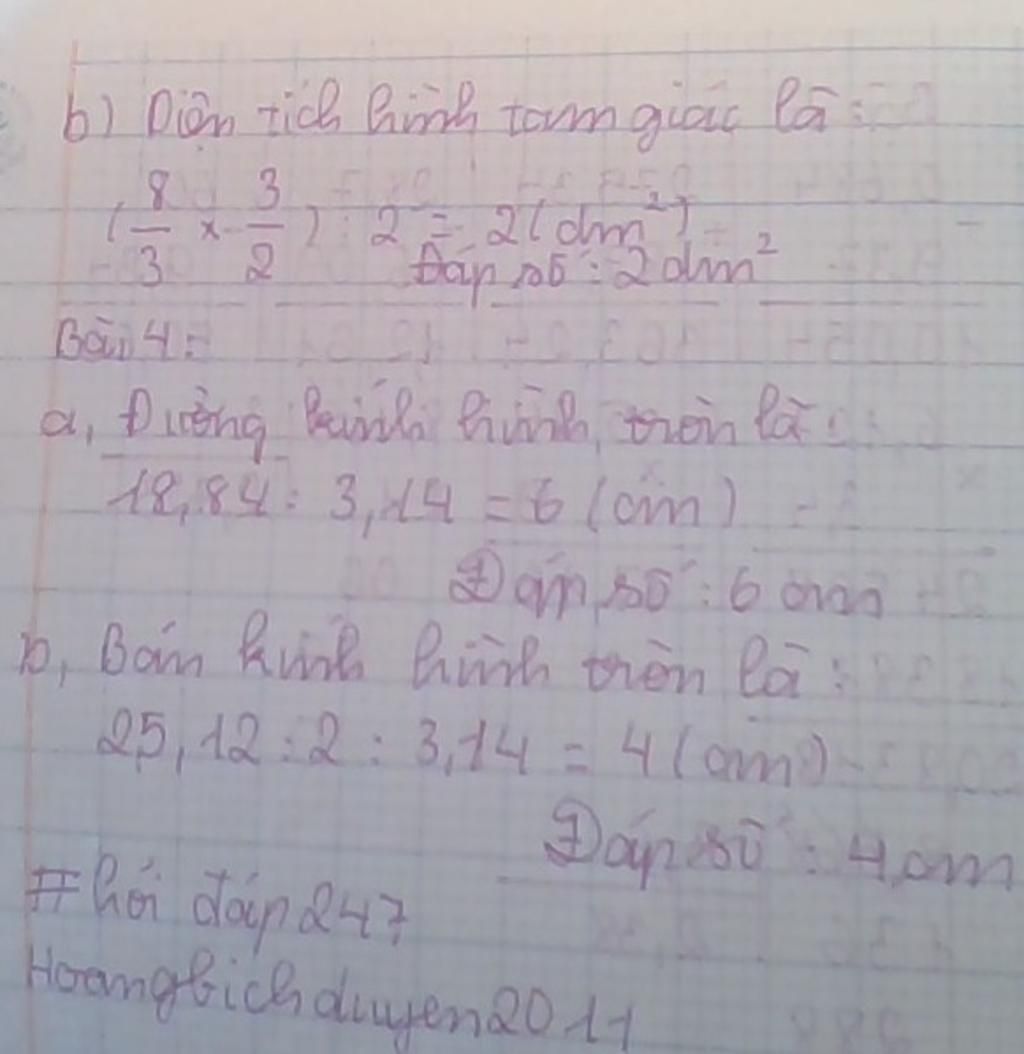 b) Diện tích hình tam giác là:
(8/3 x 3/2) : 2 = 2(dm²)
Đáp số: 2 dm²
Bài 4:
a, Đường kính hình tròn là:
18,84 : 3,14 = 6 (cm)
Đáp số: 6 cm
b, Bán kính hình tròn là:
25,12 : 2 : 3,14 = 4 (cm)
Đáp số: 4 cm
#hỏi đáp247
Hoangbichduyen2011